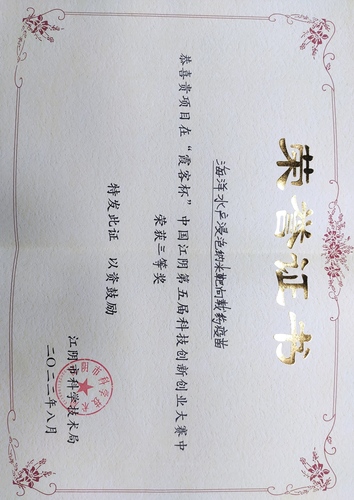 荣誉证书
海洋水产浸泡纳米靶向载药疫苗
恭喜贵项目在“霞客杯”中国江阴第五届科技创新创业大赛中
荣获三等奖
特发此证 以资鼓励
江阴市科学技术局
二〇二二年八月